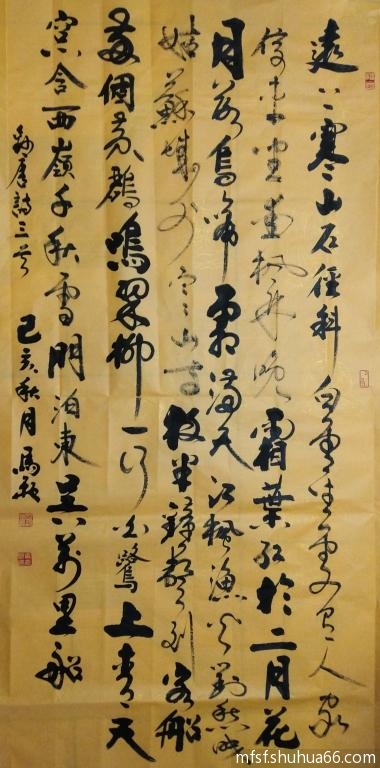 遠上寒山石徑斜白雲生處有人家
停車坐愛楓林晚霜葉紅於二月花
月落烏啼霜滿天江楓漁火對愁眠
姑蘇城外寒山寺夜半鐘聲到客船
兩個黃鸝鳴翠柳一行白鷺上青天
窗含西嶺千秋雪門泊東吳萬里船
唐詩三首 己亥秋月馬
mfsf.shuhua66.com